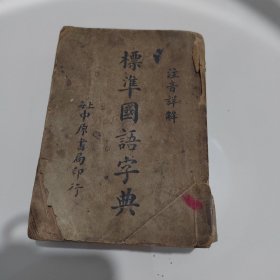 注音詳解
標準國語字典
上海中原書局印行